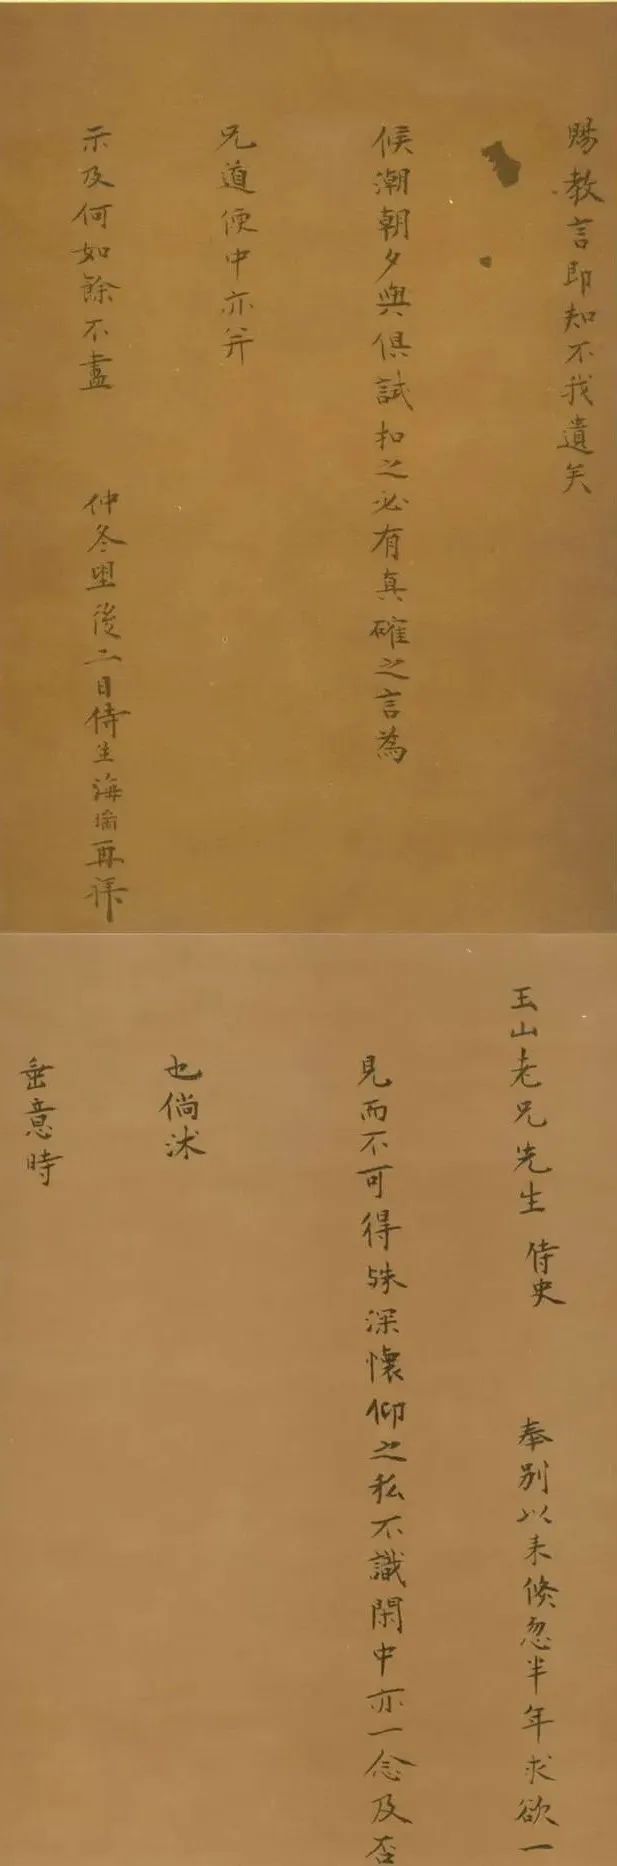 賜教言即知不我遺矣
候潮朝夕與俱試扣之必有真確之言為
兄道便中亦并
示及何如餘不盡 仲冬望後二日侍生海瑞再拜
玉山老兄先生 侍史 奉別以来倏忽半年求欲一
見而不可得殊深懷仰之私不識閑中亦一念及否
也倘沭
垂意時